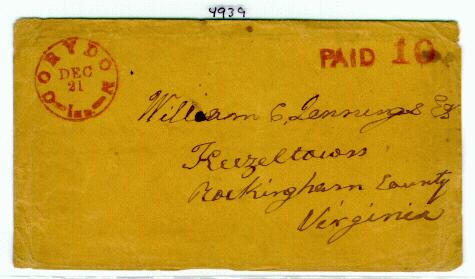 4939
CORYDON
DEC
21
Ia.
PAID 10
William C. Jennings Esq
Keezeltown
Rockingham County
Virginia